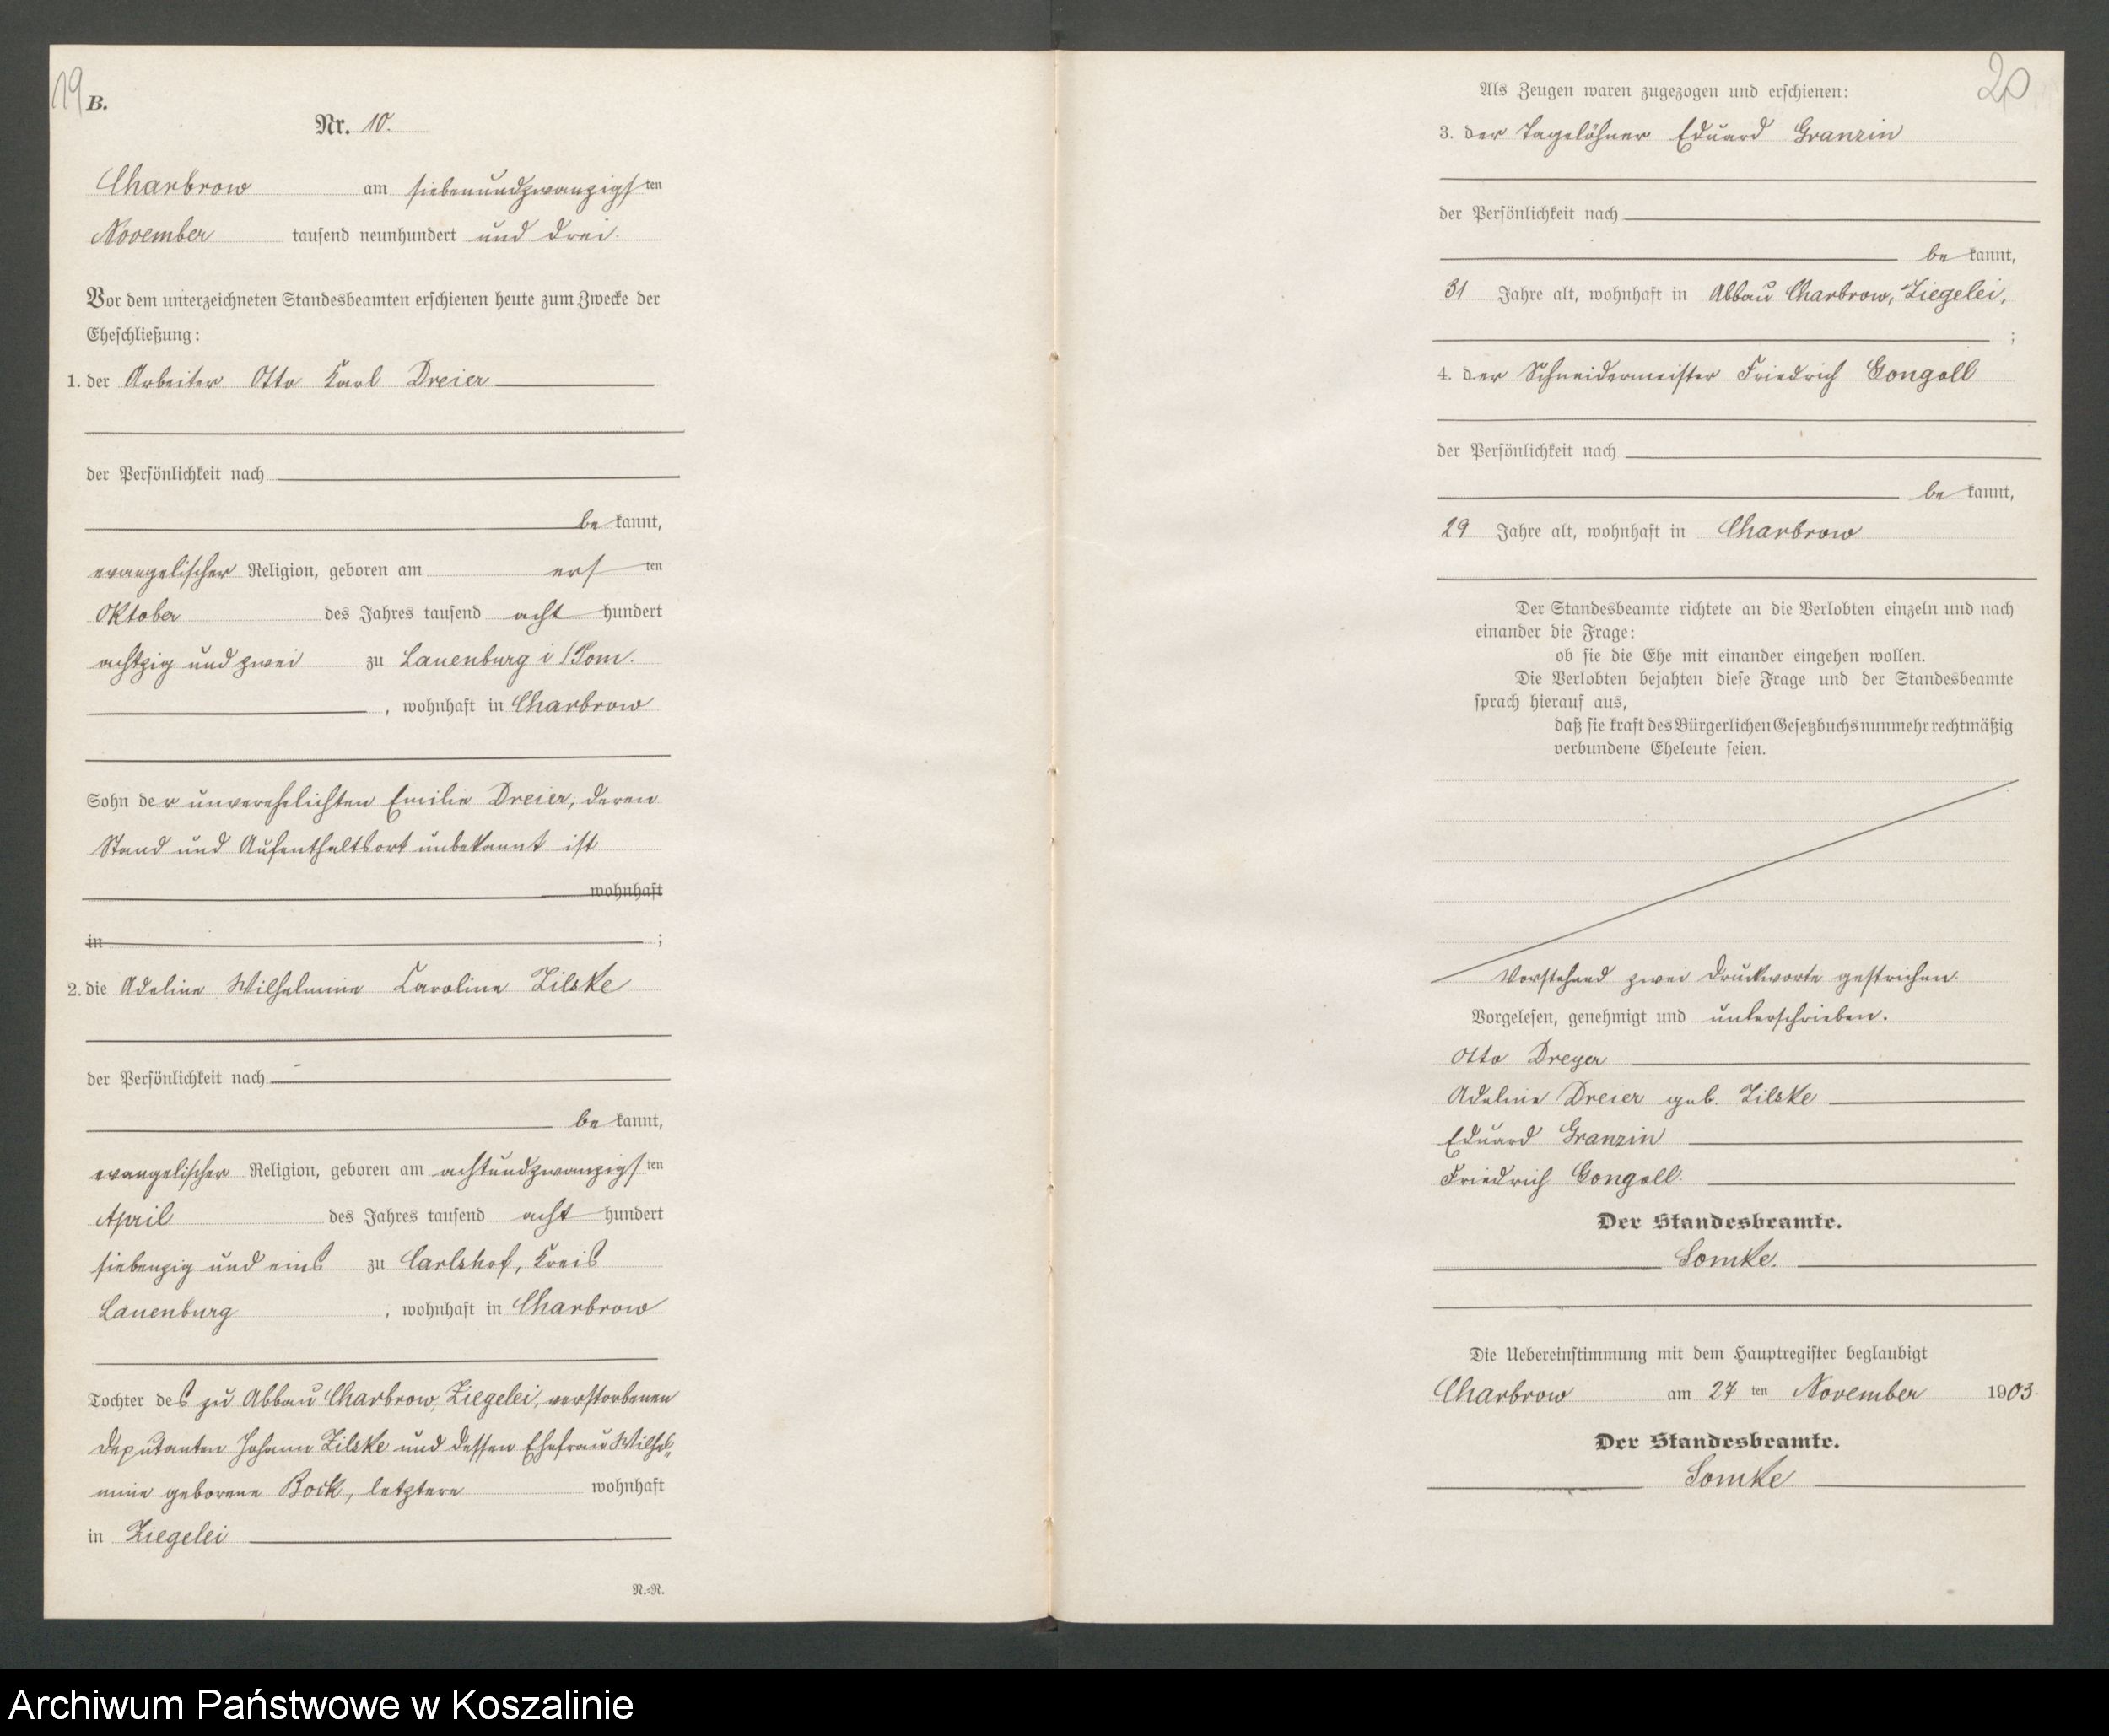 19
B.
Nr. 10.
Charbrow am siebenundzwanzigsten
November tausend neunhundert und drei.
Vor dem unterzeichneten Standesbeamten erschienen heute zum Zwecke der
Eheschließung:
1. der Arbeiter Otto Karl Dreier
der Persönlichkeit nach
be kannt,
evangelischer Religion, geboren am ersten
Oktober des Jahres tausend acht hundert
achtzig und zwei zu Lauenburg i/Pom.
, wohnhaft in Charbrow
Sohn der unverehelichten Emilie Dreier, deren
Stand und Aufenthaltsort unbekannt ist
wohnhaft
in ;
2. die Adeline Wilhelmine Caroline Zilske
der Persönlichkeit nach
be kannt,
evangelischer Religion, geboren am achtundzwanzigsten
April des Jahres tausend acht hundert
siebenzig und eins zu Carlshof, Kreis
Lauenburg , wohnhaft in Charbrow
Tochter des zu Abbau Charbrow, Ziegelei, verstorbenen
Deputanten Johann Zilske und dessen Ehefrau Wilhel„
mine geborene Bock, letztere wohnhaft
in Ziegelei
N.-N.
20
Als Zeugen waren zugezogen und erschienen:
3. der Tagelöhner Eduard Granzin
der Persönlichkeit nach
be kannt,
31 Jahre alt, wohnhaft in Abbau Charbrow, Ziegelei,
;
4. der Schneidermeister Friedrich Gongoll
der Persönlichkeit nach
be kannt,
29 Jahre alt, wohnhaft in Charbrow
Der Standesbeamte richtete an die Verlobten einzeln und nach
einander die Frage:
ob sie die Ehe mit einander eingehen wollen.
Die Verlobten bejahten diese Frage und der Standesbeamte
sprach hierauf aus,
daß sie kraft des Bürgerlichen Gesetzbuchs nunmehr rechtmäßig
verbundene Eheleute seien.
Vorstehend zwei Druckworte gestrichen.
Vorgelesen, genehmigt und unterschrieben.
Otto Dreyer
Adeline Dreier geb. Zilske
Eduard Granzin
Friedrich Gongoll.
Der Standesbeamte.
Somke.
Die Uebereinstimmung mit dem Hauptregister beglaubigt
Charbrow am 27 ten November 1903.
Der Standesbeamte.
Somke.
Archiwum Państwowe w Koszalinie